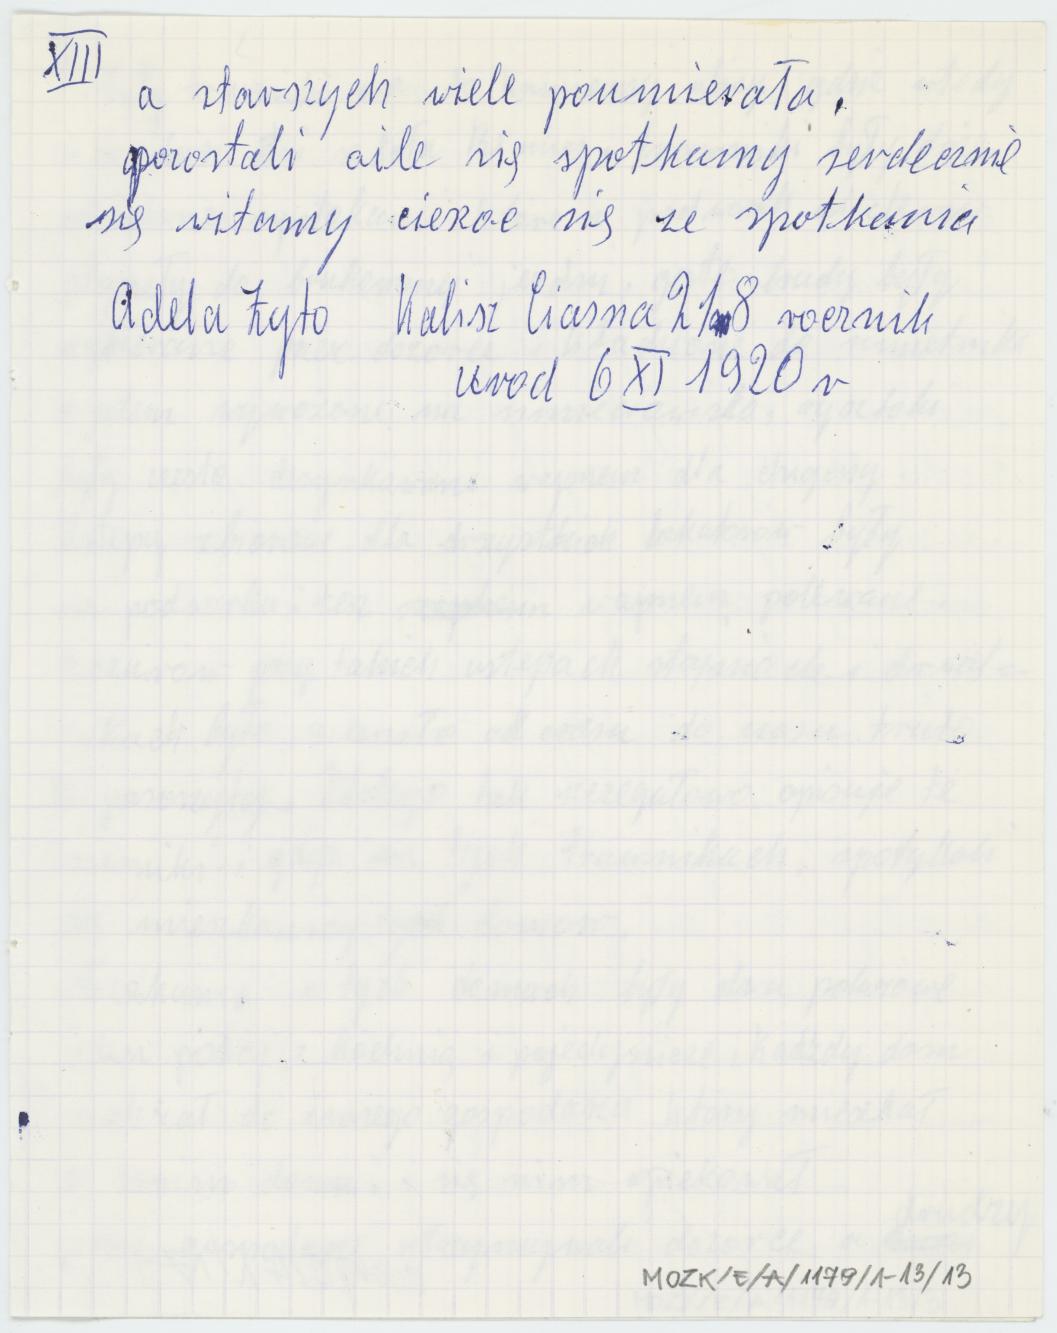 XIII
a starszych wiele poumierała.
pozostali aile się spotkamy serdecznie
się witamy ciesząc się ze spotkania
Adela Żyto Kalisz Ciasna 21 8 rocznik
urod 6 XI 1920 r
MOZK/E/A/1179/1-13/13